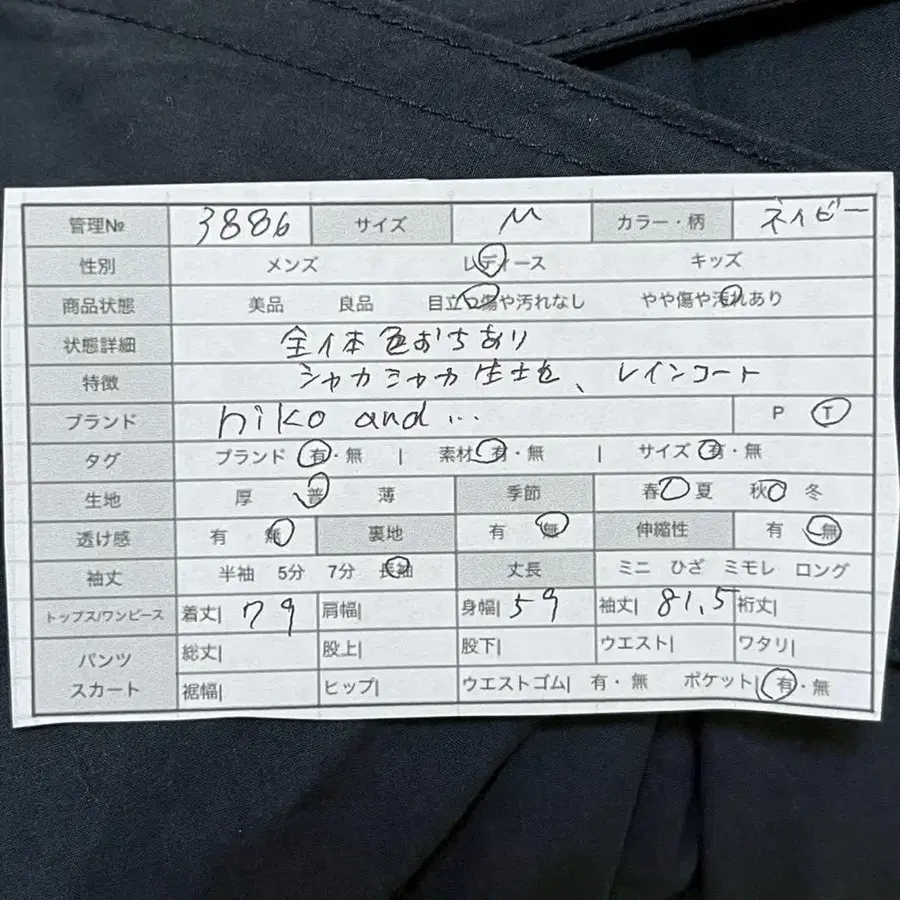 管理№ 3886 サイズ M カラー・柄 ネイビー
性別 メンズ レディース キッズ
商品状態 美品 良品 目立つ傷や汚れなし やや傷や汚れあり
状態詳細 全体色おちあり
特徴 シャカシャカ生地、レインコート
ブランド niko and ... P T
タグ ブランド 有・無 | 素材 有・無 | サイズ 有・無
生地 厚 普 薄 季節 春 夏 秋 冬
透け感 有 無 裏地 有 無 伸縮性 有 無
袖丈 半袖 5分 7分 長袖 丈長 ミニ ひざ ミモレ ロング
トップス/ワンピース 着丈| 79 肩幅| 身幅| 59 袖丈| 81.5 裄丈|
パンツ スカート 総丈| 股上| 股下| ウエスト| ワタリ|
裾幅| ヒップ| ウエストゴム| 有・無 ポケット| 有・無